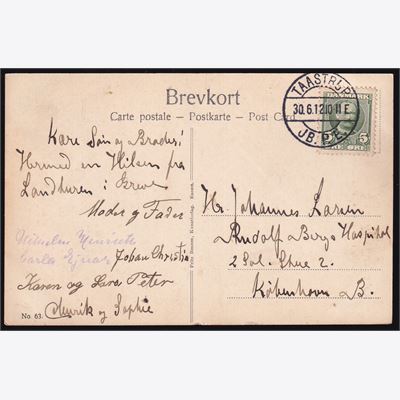 Brevkort
Carte postale - Postkarte - Post Card
TAASTRUP
30.6.12 10-11 E
JB.P.E.
DANMARK
5
ØRE
Kære Søn og Broder!
Hermed en Hilsen fra
Landturen i Greve
Moder og Fader
Vilhelm Henriette
Carla Ejnar Johan Christia
Karen og Lars Peter
Henrik og Sophie
No. 63.
Hr. Johannes Larsen
Rudolf Berg's Hospital
2 Sal. Stue 2.
København B.